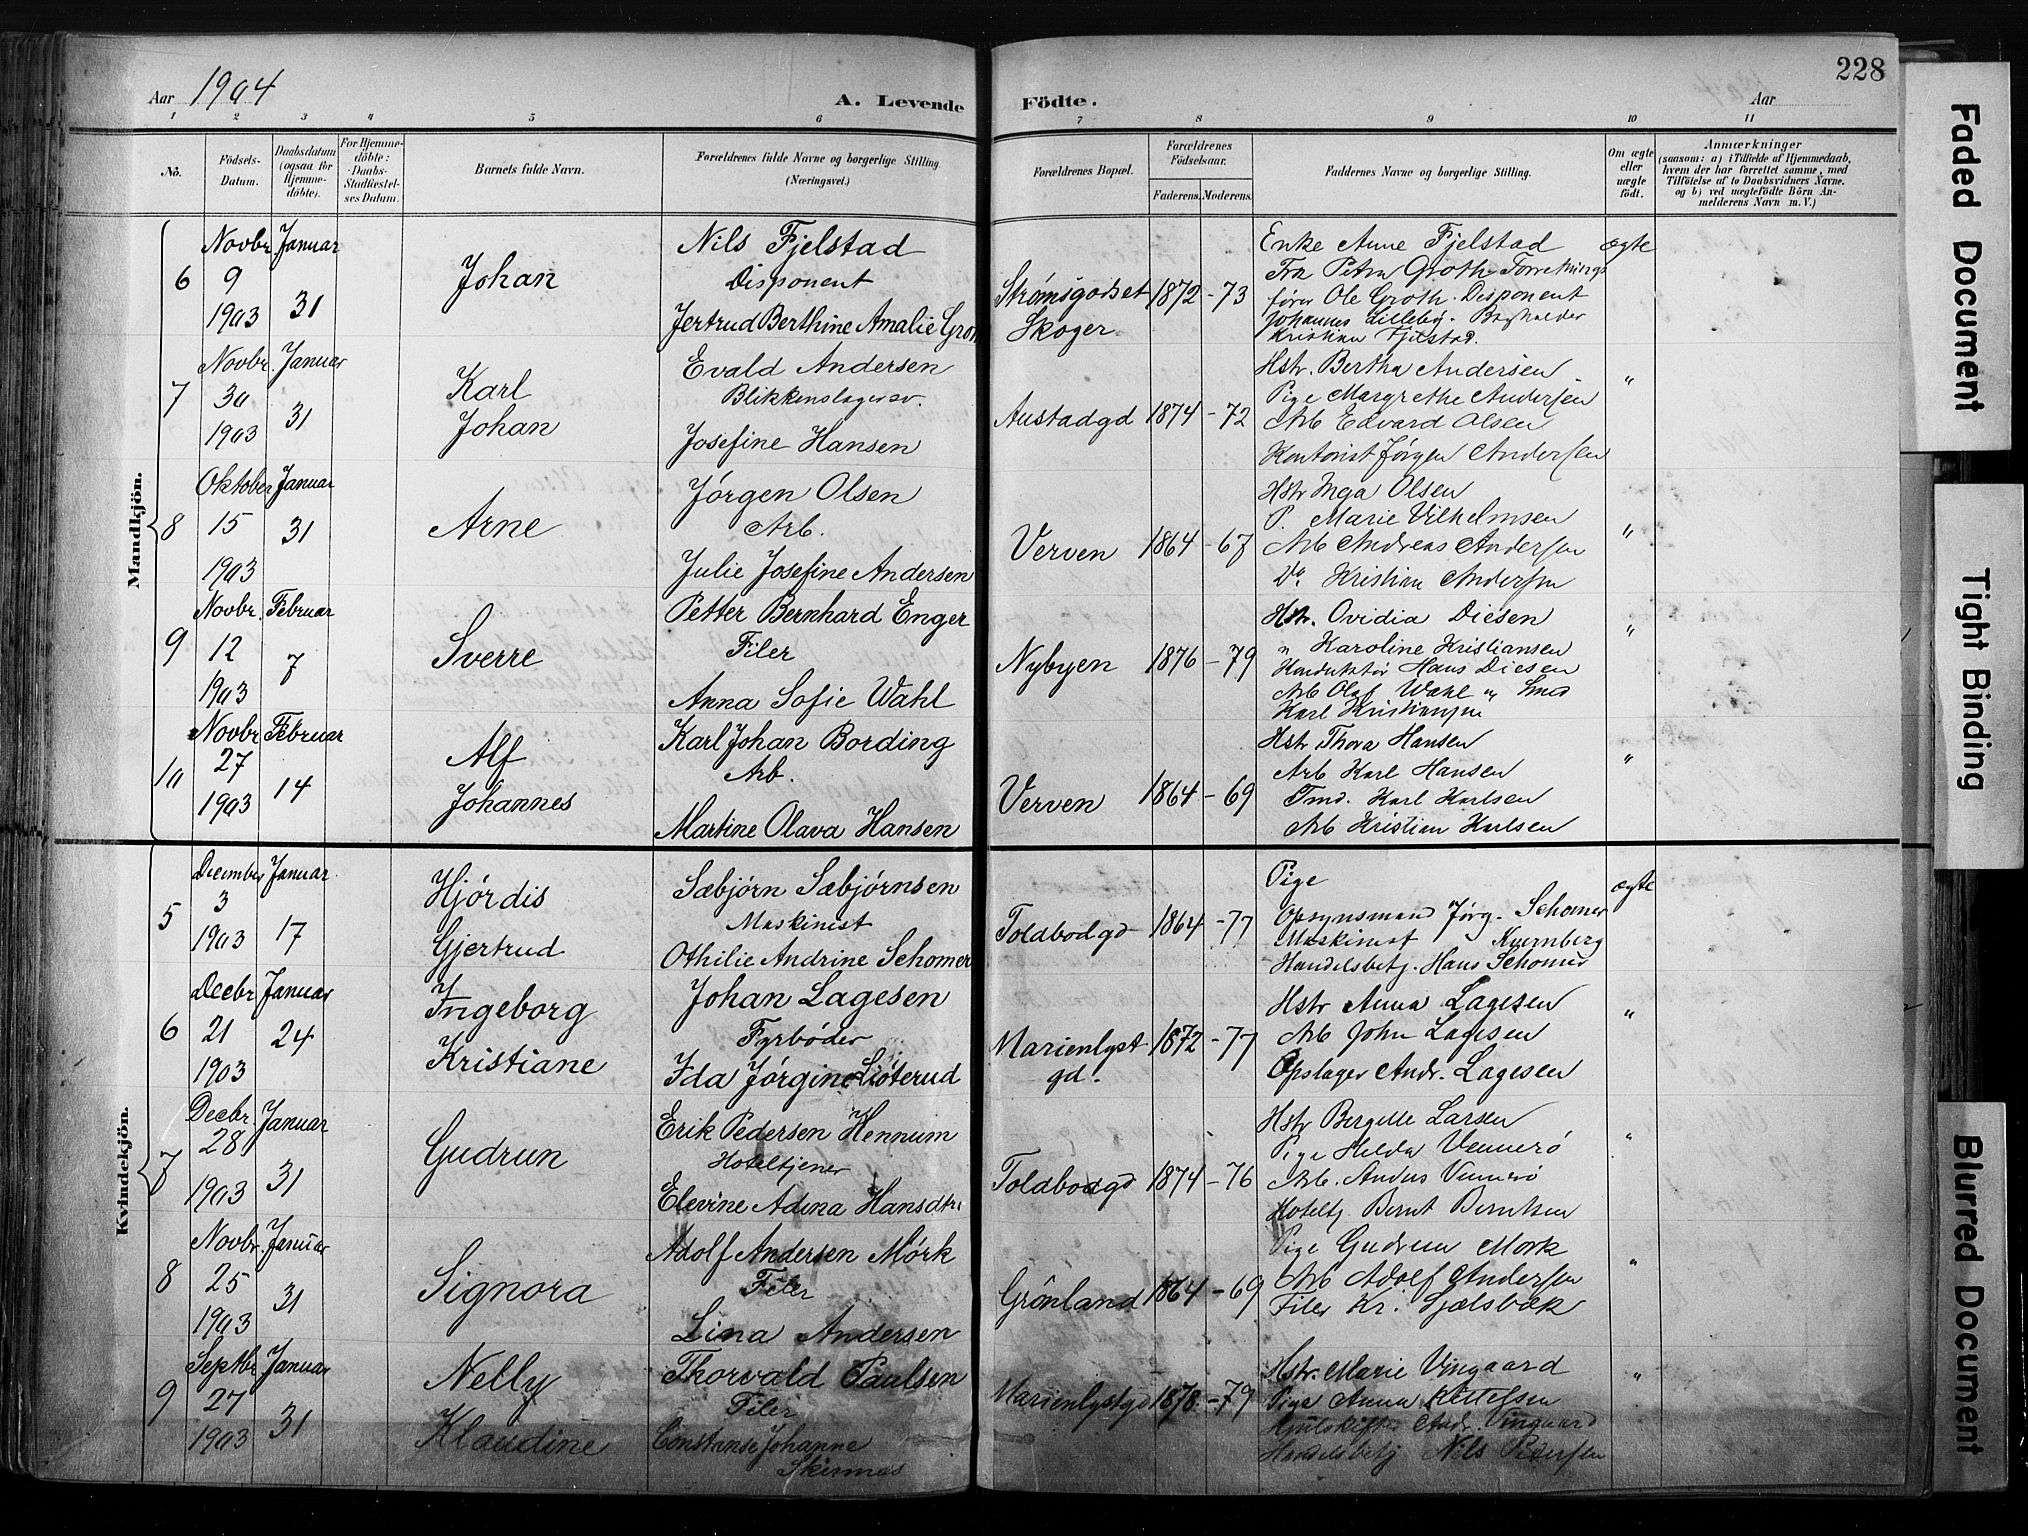 Aar 1904
A. Levende
Födte.
Aar
228
1 2 3 4 5 6 7 8 9 10 11
No.
Födsels-Datum.
Daabsdatum (ogsaa för Hjemme-döbte).
For Hjemme-döbte: Daabs-Stadfæstel-ses Datum.
Barnets fulde Navn.
Forældrenes fulde Navne og borgerlige Stilling. (Næringsvei.)
Forældrenes Bopæl.
Forældrenes Födselsaar.
Faderens. Moderens.
Faddernes Navne og borgerlige Stilling.
Om ægte eller uægte födt.
Anmærkninger
(saasom: a) i Tilfælde af Hjemmedaab,
hvem der har forrettet samme, med
Tilföielse af to Daabsvidners Navne.
og b) ved uegtefödte Börn An-
melderens Navn m. V.)
Mandkjön.
6
Novbr 9 1903
Januar 31
Johan
Nils Fjelstad
Disponent
Jertrud Berthine Amalie
Strømsgodset
Skoger
1872 - 73
Enke Anne Fjelstad
Fru Petra Groth Forretnings
fører Ole Groth. Disponent
Johannes Lillebø. Bogholder
Kristian Fjelstad.
ægte
7
Novbr. 30 1903
Januar 31
Karl
Johan
Evald Andersen
Blikkenslagersv.
Josefine Hansen
Austadgd
1874 - 72
Hstr. Bertha Andersen
Pige Margrethe Andersen
Arb Edvard Olsen
Kontorist Jørgen Andersen
"
8
Oktober 15 1903
Januar 31
Arne
Jørgen Olsen
Arb.
Julie Josefine Andersen
Verven
1864 - 67
Hstr Inga Olsen
P. Marie Vilhelmsen
Arb Andreas Andersen
Do. Kristian Andersen
"
9
Novbr. 12 1903
Februar 7
Sverre
Petter Bernhard Enger
Filer
Anna Sofie Wahl
Nybyen
1876 - 79
Hstr. Ovidia Diesen
" Karoline Kristiansen
Konduktør Hans Diesen
Arb Olaf Wahl og
Karl Kristiansen
"
10
Novbr 27 1903
Februar 14
Alf
Johannes
Karl Johan Bording
Arb.
Martine Olava Hansen
Verven
1864 - 69
Hstr Thora Hansen
Arb Karl Hansen
Tmd. Karl Karlsen
Arb Kristian Karlsen
"
Kvindekjön.
5
December 3 1903
Januar 17
Hjørdis
Gjertrud
Sæbjørn Sæbjørnsen
Maskinist
Othilie Andrine Schomer
Toldbodgd
1864 - 77
Pige
Opsynsmand Jørg. Schomer
Maskinist Kvernberg
Handelsbetj. Hans Schomer
ægte
6
Decbr 21 1903
Januar 24
Ingeborg
Kristiane
Johan Lagesen
Fyrbøder
Ida Jørgine Liøterud
Marienlyst
gd.
1872 - 77
Hstr Anna Lagesen
Arb John Lagesen
Opslager Andr. Lagesen
"
7
Decbr 28 1903
Januar 31
Gudrun
Erik Pedersen Hennum
Hoteltjener
Elevine Adina Hansdtr
Toldbodgd
1874 - 76
Hstr Bergitte Larsen
Pige Helda Vennerø
Arb. Anders Vennerø
Hoteltj Bernt Berntsen
"
8
Novbr. 25 1903
Januar 31
Signora
Adolf Andersen Mørk
Filer
Lina Andersen
Grønland
1864 - 69
Pige Gudrun Mørk
Arb Adolf Andersen
Filer Kr. Sjælsbæk
"
9
Septbr 27 1903
Januar 31
Nelly
Klaudine
Thorvald Paulsen
Filer
Constanse Johanne
Skinnes
Marienlystgd
1878 - 79
Hstr. Marie Vingaard
Pige Anna Kittelsen
Hjulskifter Andr. Vingaard
Handelsbetj Nils Pedersen
"
Faded Document
Tight Binding
Blurred Document